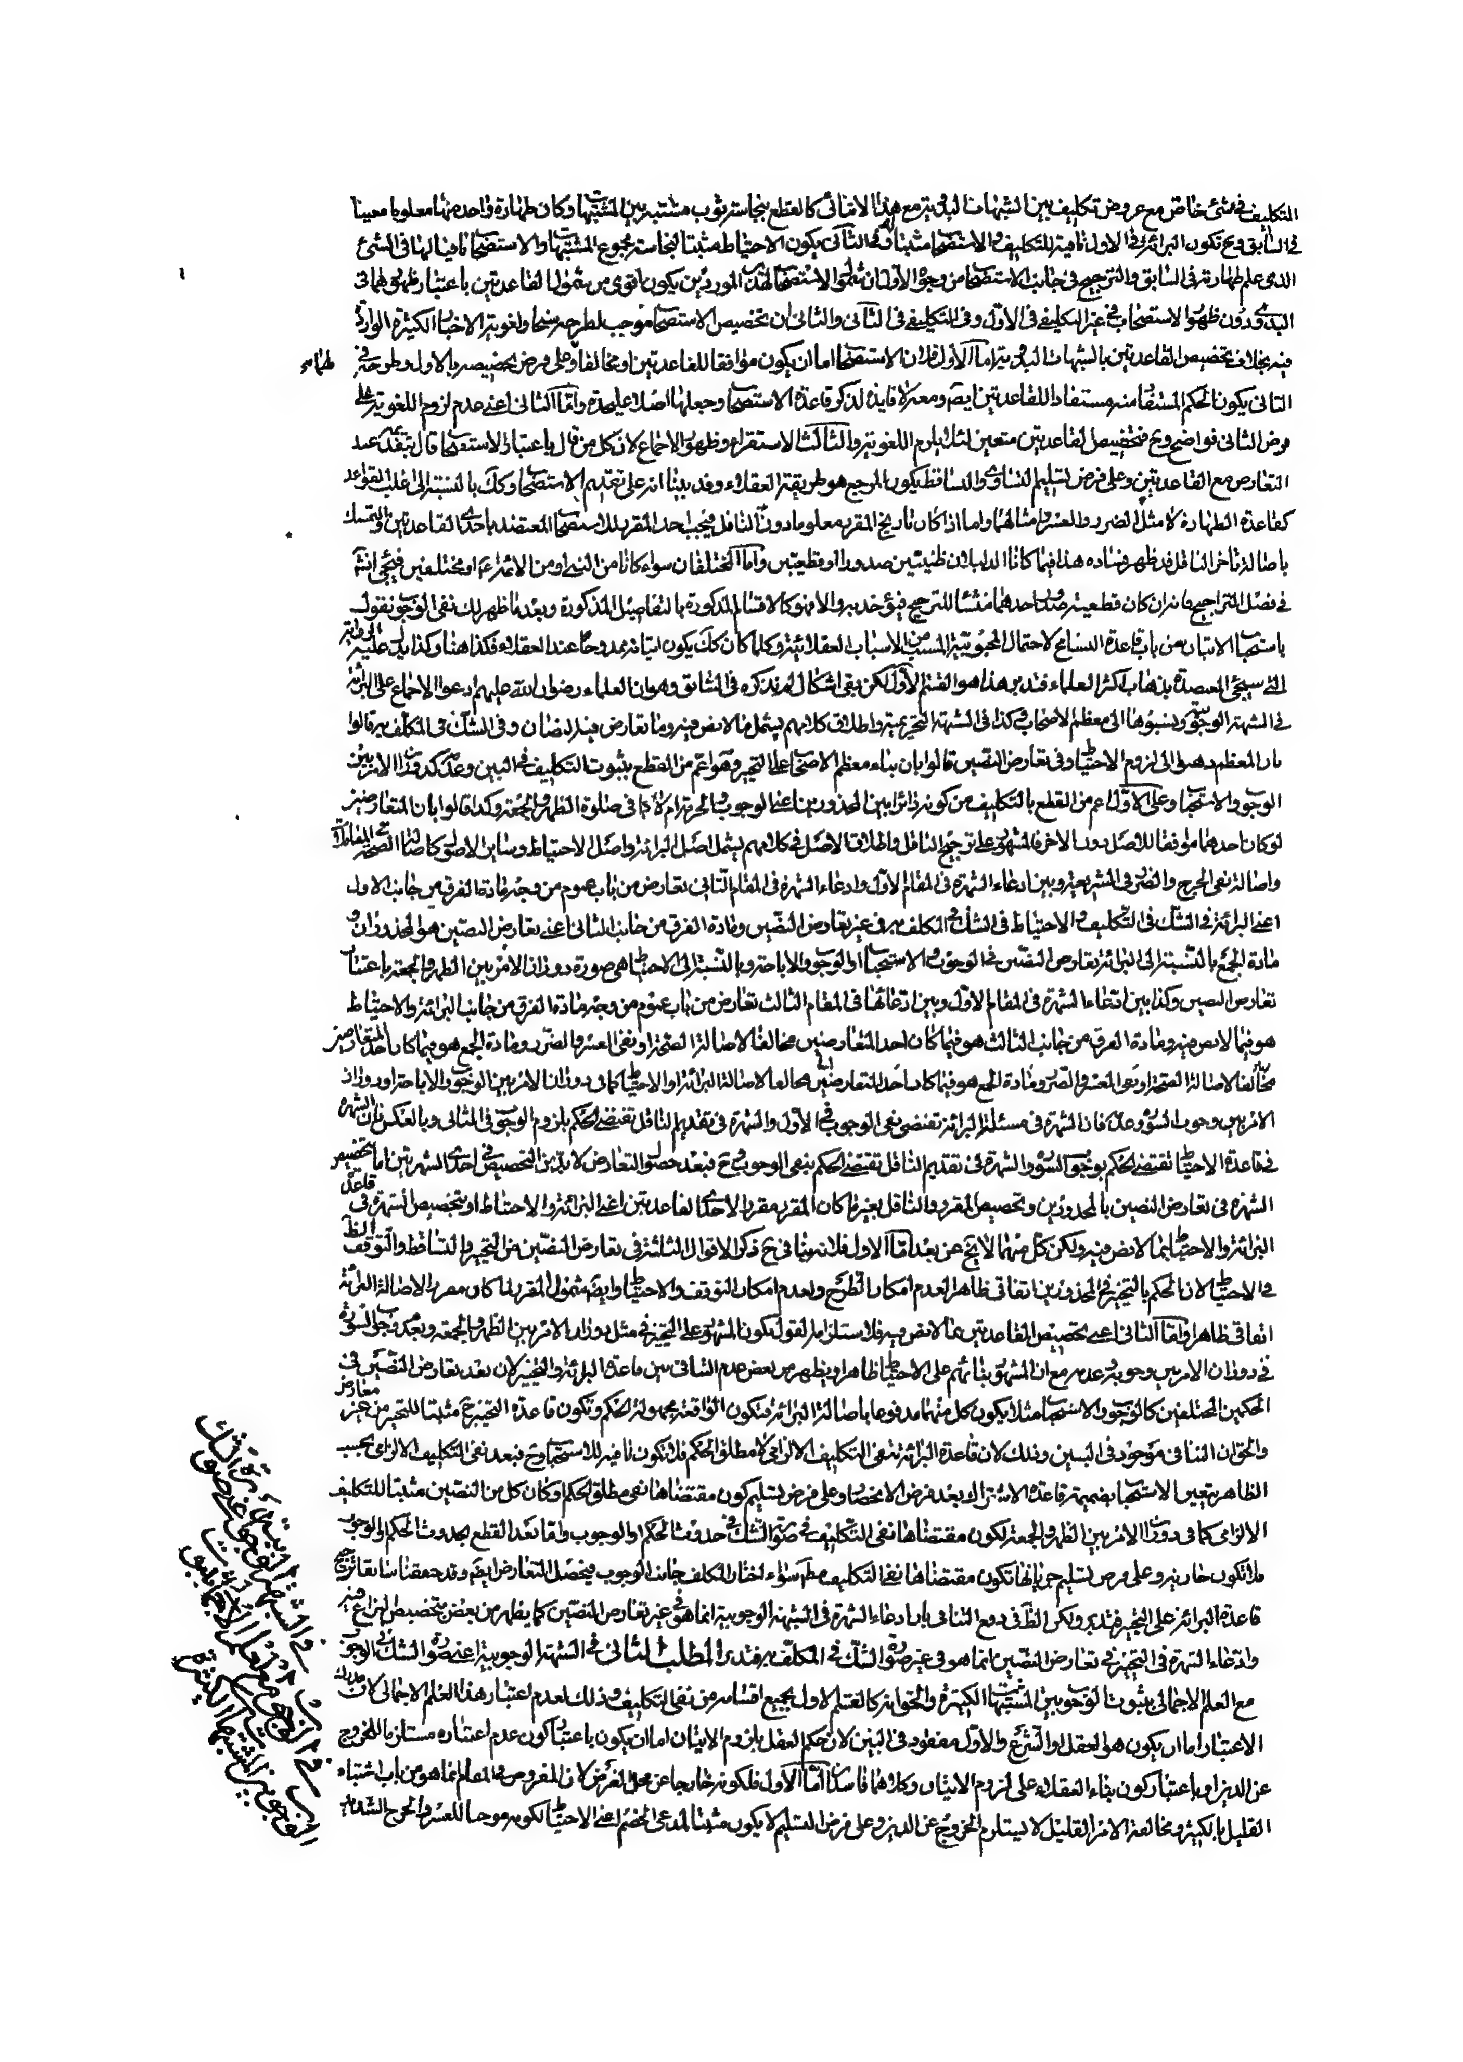 التكليف في شئ خاص مع عروض تكليف بين الشبهات البدوية مع هذا الاناء كالقطع بنجاسة ثوب مشتبه بين المشتبهات وكان طهارة واحد منها معلوما معينا
في السابق وح تكون البرائة في الاول نافية للتكليف والاستصحاب مثبتا وفي الثاني يكون الاحتياط مثبتا لنجاسة مجموع المشتبهات والاستصحاب نافيا لها في الشئ
الذى علم طهارته في السابق والترجيح في جانب الاستصحاب من وجوه الاول ان شمول الاستصحاب لهذين الموردين يكون اقوى من شمول القاعدتين باعتبار ظهورهما في
البدوى ودون ظهور الاستصحاب في غير التكليفى في الاول وفي التكليفى في الثاني والثاني ان تخصيص الاستصحاب موجب لطرحه رأسا ولغوية الاخبار الكثيرة الواردة
فيه بخلاف تخصيص القاعدتين بالشبهات البدوية اما الاول فلان الاستصحاب اما ان يكون موافقا للقاعدتين او مخالفا وعلى فرض تخصيصه بالاول وطرحه في
الثاني يكون الحكم المستفاد منه مستفادا للقاعدتين ايضا ومعه لا فايدة لذكر قاعدة الاستصحاب وجعلها اصلا عليحدة واما الثاني اعنى عدم لزوم اللغوية على
فرض الثاني فواضح وح فتخصيص القاعدتين متعين لئلا يلزم اللغوية والثالث الاستقراء وظهور الاجماع لان كل من قال باعتبار الاستصحاب قال بتقديمه عند
التعارض مع القاعدتين وعلى فرض تسليم التساوى والتساقط يكون المرجع هو طريقة العقلاء وقد بينا انه على تقديم الاستصحاب وكك بالنسبة الى اغلب القواعد
كقاعدة الطهارة لا مثل الضرر والعسر وامثالهما واما اذا كان تاريخ المقرر معلوما دون الناقل فيجب اخذ المقرر للاستصحاب المعتضد باحدى القاعدتين والتمسك
باصالة تاخر الناقل قد ظهر فساده هذا فيما كانا الدليلان ظنيتين صدورا او قطعيتين واما المختلفان سواء كانا من النبي او من الائمة ع او مختلفين فيجئ انشاء
في فصل التراجيح فانه ان كان قطعية صدور احدهما منشأ للترجيح فيؤخذ به والا فهو كالاقسام المذكورة بالتفاصيل المذكورة وبعد ما ظهر لك نفى الوجوب نقول
باستحباب الاتيان من باب قاعدة التسامح لاحتمال المحبوبية المسبب من الاسباب العقلائية وكلما كان كك يكون اتيانه ممدوحا عند العقلاء فكذا هنا وكذا يدل عليه الروايات
التي سيجئ المعتضدة بذهاب اكثر العلماء فتدبر هذا هو القسم الاول لكن بقى اشكال لم نذكره في السابق وهو ان العلماء رضوان الله عليهم ادعوا الاجماع على البرائة
في الشبهة الوجوبية ونسبوها الى معظم الاصحاب وكذا في الشبهة التحريمية واطلاق كلامهم يشمل ما لا نص فيه وما تعارض فيه النصان وفي الشك في المكلف به قالوا
بان المعظم ذهبوا الى لزوم الاحتياط وفي تعارض النصين قالوا بان بناء معظم الاصحاب على التخيير وهو اعم من القطع بثبوت التكليف في البين وعدمه كدوران الامر بين
الوجوب والاستحباب وعلى الاول اعم من القطع بالتكليف من كونه دائرا بين المحذورين اعنى الوجوب والحرمة ام لا كما في صلوة الظهر والجمعة وكذا قالوا بان المتعارضين
لو كان احدهما موافقا للاصل دون الاخر فالمشهور على ترجيح الناقل واطلاق الاصل في كلامهم يشمل اصل البرائة واصل الاحتياط وساير الاصول كاصالة الصحة في المعاملات
واصالة نفى الحرج والضرر في الشريعة وبين ادعاء الشهرة في المقام الاول وادعاء الشهرة في المقام الثاني تعارض من باب عموم من وجه مادة الفرق من جانب الاول
اعنى البرائة في الشك في التكليف والاحتياط في الشك في المكلف به في غير تعارض النصين ومادة الفرق من جانب الثاني اعنى تعارض النصين هو المحذوران و
مادة الجمع بالنسبة الى البرائة تعارض النصين في الوجوب والاستحباب او الوجوب والاباحة وبالنسبة الى الاحتياط هي صورة دوران الامر بين الظهر والجمعة باعتبار
تعارض النصين وكذا بين ادعاء الشهرة في المقام الاول وبين ادعائها في المقام الثالث تعارض من باب عموم من وجه مادة الفرق من جانب البرائة والاحتياط
هو فيما لا نص فيه ومادة الفرق من جانب الثالث هو فيما كان احد المتعارضين مخالفا لاصالة الصحة او نفى العسر والضرر ومادة الجمع هو فيما كان احد المتعارضين
مخالفا لاصالة البرائة او الاحتياط كما في دوران الامر بين الوجوب والاباحة او دوران
الامر بين وجوب السورة وعدمه فان الشهرة في مسئلة البرائة تقتضى نفى الوجوب في الاول والشهرة في تقديم الناقل تقتضى الحكم بلزوم الوجوب في الثاني وبالعكس لان الشهرة
في قاعدة الاحتياط تقتضى الحكم بوجوب السورة والشهرة في تقديم الناقل تقتضى الحكم بنفى الوجوب وح فبعد حصول التعارض لا بد من التخصيص في احدى الشهرتين اما بتخصيص
الشهرة في تعارض النصين بالمحذورين وتخصيص المقرر والناقل بغير ما كان المقرر مقررا لاحدى القاعدتين اعنى البرائة والاحتياط او بتخصيص الشهرة في قاعدة
البرائة والاحتياط بما لا نص فيه ولكن كل منهما لا يخ عن بعد اما الاول فلانه ينافي ح ذكر الاقوال الثلثة في تعارض النصين من التخيير والتساقط والتوقف
والاحتياط لان الحكم بالتخيير في المحذورين اتفاقى ظاهرا لعدم امكان الطرح ولعدم امكان التوقف والاحتياط وايضا شمول المقرر لما كان مقررا لاصالة البرائة
اتفاقى ظاهرا واما الثاني اعنى تخصيص القاعدتين بما لا نص فيه فلاستلزامه القول بكون المشهور على التخيير في مثل دوران الامر بين الظهر والجمعة وبعدم وجوب السورة
في دوران الامر بين وجوبه وعدمه مع ان المشهور بنائهم على الاحتياط ظاهرا ويظهر من بعض عدم التنافى بين قاعدة البرائة والتخيير لان بعد تعارض النصين في
الحكمين المختلفين كالوجوب والاستحباب مثلا يكون كل منهما مدفوعا باصالة البرائة فتكون الواقعة مجهولة الحكم وتكون قاعدة التخيير ح مثبتا للتخيير من غير معارض
والحق ان التنافى موجود في البين وذلك لان قاعدة البرائة تنفى التكليف الالزامى لا مطلق الحكم فلا تكون نافية للاستحباب وح فبعد نفى التكليف الالزامى بحسب
الظاهر يتعين الاستحباب بضميمة قاعدة الاشتراك بعد فرض الانحصار وعلى فرض تسليم كون مقتضاها نفى مطلق الحكم او كان كل من النصين مثبتا للتكليف
الالزامى كما في دوران الامر بين الظهر والجمعة لكون مقتضاها نفى التكليف في صورة الشك في حدوث الحكم او الوجوب واما بعد القطع بحدوث الحكم والوجوب
فلا تكون جارية وعلى فرض تسليم جريانها تكون مقتضاها نفى التكليف مطلقا سواء اختار المكلف جانب الوجوب فيحصل التعارض ايضا وقد حققنا سابقا ترجيح
قاعدة البرائة على التخيير فتدبر ولكن الظ في دفع التنافى بان ادعاء الشهرة في الشبهة الوجوبية انما هو في غير تعارض النصين كما يظهر من بعض بتخصيص النزاع فيه
وادعاء الشهرة في التخيير في تعارض النصين انما هو في غير صورة الشك في المكلف به فتدبر المطلب الثاني في الشبهة الوجوبية اعنى صورة الشك في الوجوب
مع العلم الاجمالى بثبوت الوجوب بين المشتبهات الكثيرة والحق انه كالقسم الاول بجميع اقسامه من نفى التكليف وذلك لعدم اعتبار هذا العلم الاجمالى لان مدرك
الاعتبار اما ان يكون هو العقل او الشرع والاول مفقود في البين لان حكم العقل بلزوم الاتيان اما ان يكون باعتبار كون عدم اعتباره مستلزما للخروج
عن الدين او باعتبار كون بناء العقلاء على لزوم الاتيان وكلاهما فاسدان اما الاول فلكونه خارجا عن محل الغرض لان المفروض في المقام انما هو من باب اشتباه
القليل بالكثير ومخالفة الامر القليل لا يستلزم الخروج عن الدين وعلى فرض التسليم لا يكون مثبتا لمدعى الخصم اعنى الاحتياط لكونه موجبا للعسر والحرج الشديد
في الشبهة الوجوبية
الوجوب بين المشتبهات الكثيرة